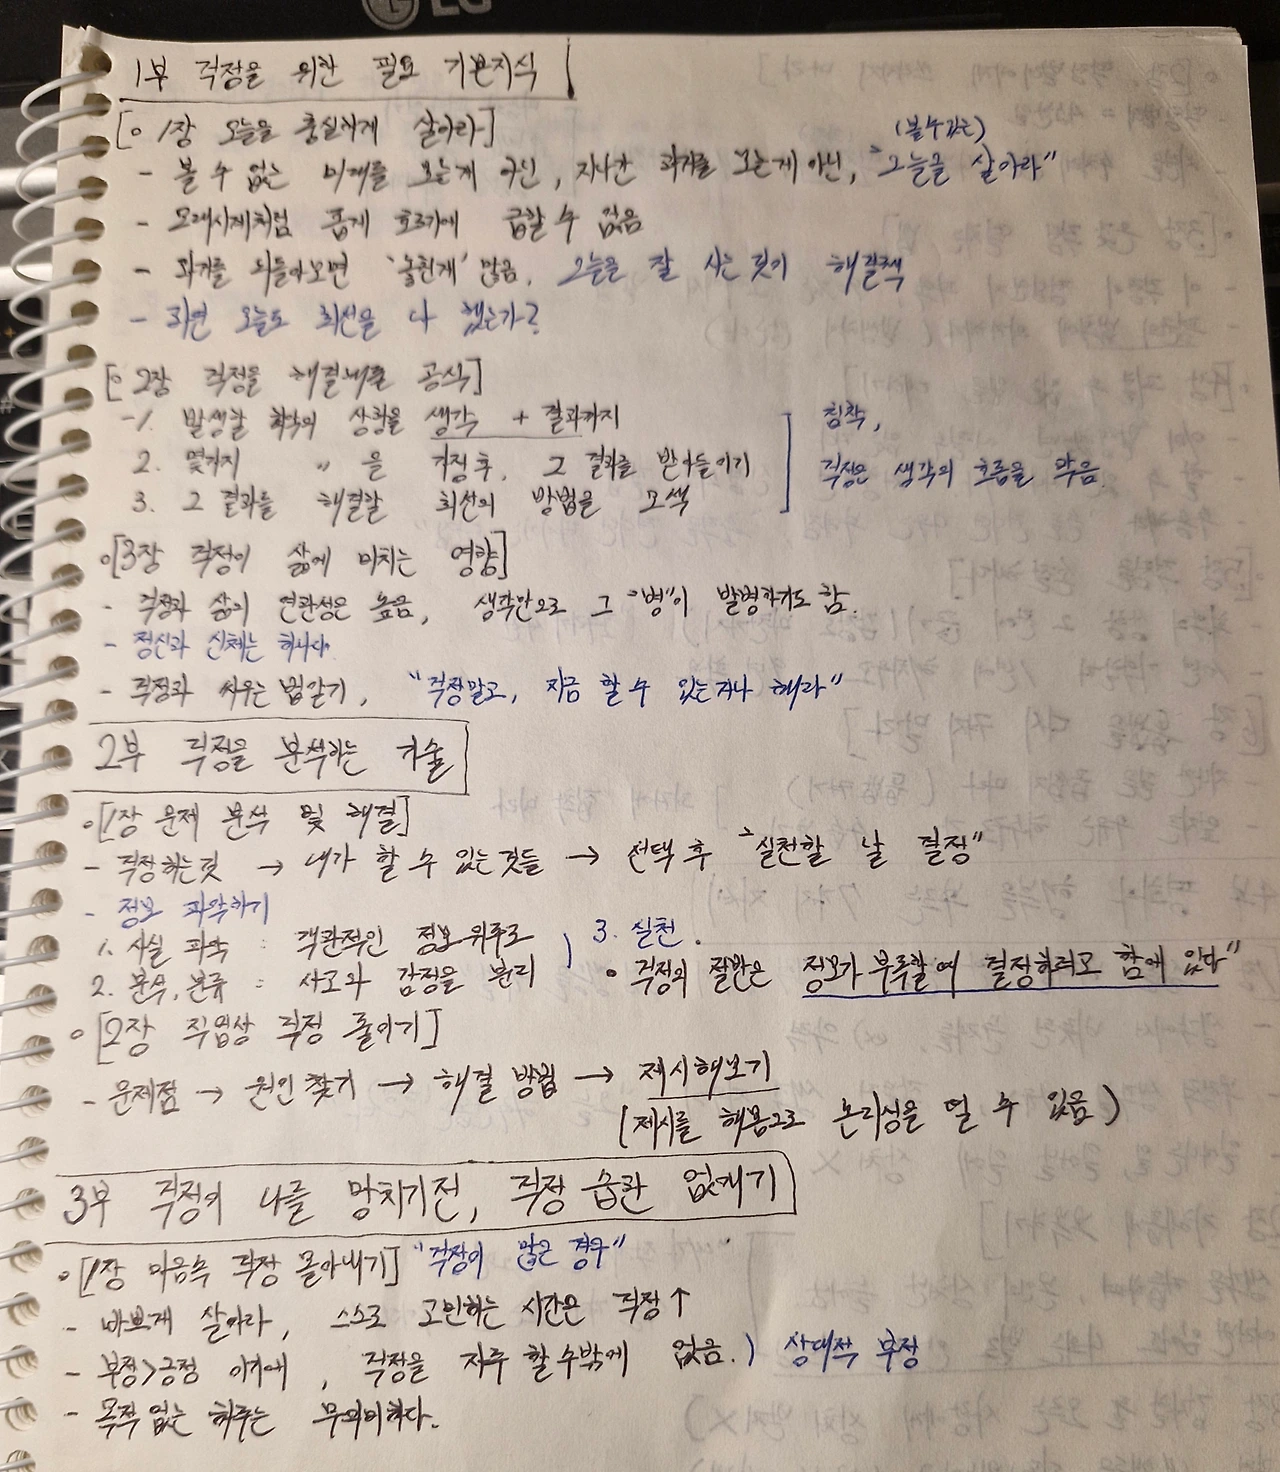 LG
1부 걱정을 위한 필요 기본지식
[o 1장 오늘을 충실하게 살아라]
(볼 수 있는)
- 볼 수 없는 미래를 모는게 아닌, 지나간 과거를 모는게 아닌, "오늘을 살아라"
- 모래시계처럼 좁게 흐르기에 급할 수 없음
- 과거를 되돌아보면 '놓친게' 많음. 오늘을 잘 사는 것이 해결책
- 과연 오늘도 최선을 다 했는가?
[o 2장 걱정을 해결해줄 공식]
-1. 발생할 최악의 상황을 생각 + 결과까지
2. 몇가지 〃 을 가정 후, 그 결과를 받아들이기
3. 그 결과를 해결할 최선의 방법을 모색
침착,
걱정은 생각의 흐름을 막음.
o[3장 걱정이 삶에 미치는 영향]
- 걱정과 삶의 연관성은 높음, 생각만으로 그 "병"이 발병하기도 함.
- 정신과 신체는 하나다.
- 걱정과 싸우는 법 알기, "걱정말고, 지금 할 수 있는거나 해라"
2부 걱정을 분석하는 기술
o[1장 문제 분석 및 해결]
- 걱정하는 것 → 내가 할 수 있는 것들 → 선택 후 "실천할 날 결정"
- 정보 파악하기
1. 사실 파악 : 객관적인 정보 위주로
2. 분석, 분류 : 사고와 감정을 분리
3. 실천.
o 걱정의 절반은 정보가 부족할 때 결정하려고 함에 있다"
o [2장 직업상 걱정 줄이기]
- 문제점 → 원인 찾기 → 해결 방법 → 제시해보기
(제시를 해봄으로 논리성을 띌 수 있음)
3부 걱정이 나를 망치기전, 걱정 습관 없애기
o [1장 마음속 걱정 몰아내기] "걱정이 많은 경우"
- 바쁘게 살아라, 스스로 고민하는 시간은 걱정↑
- 부정>긍정 이기에, 걱정을 자주 할 수밖에 없음.) 상대적 부정
- 목적 없는 하루는 무의미하다.